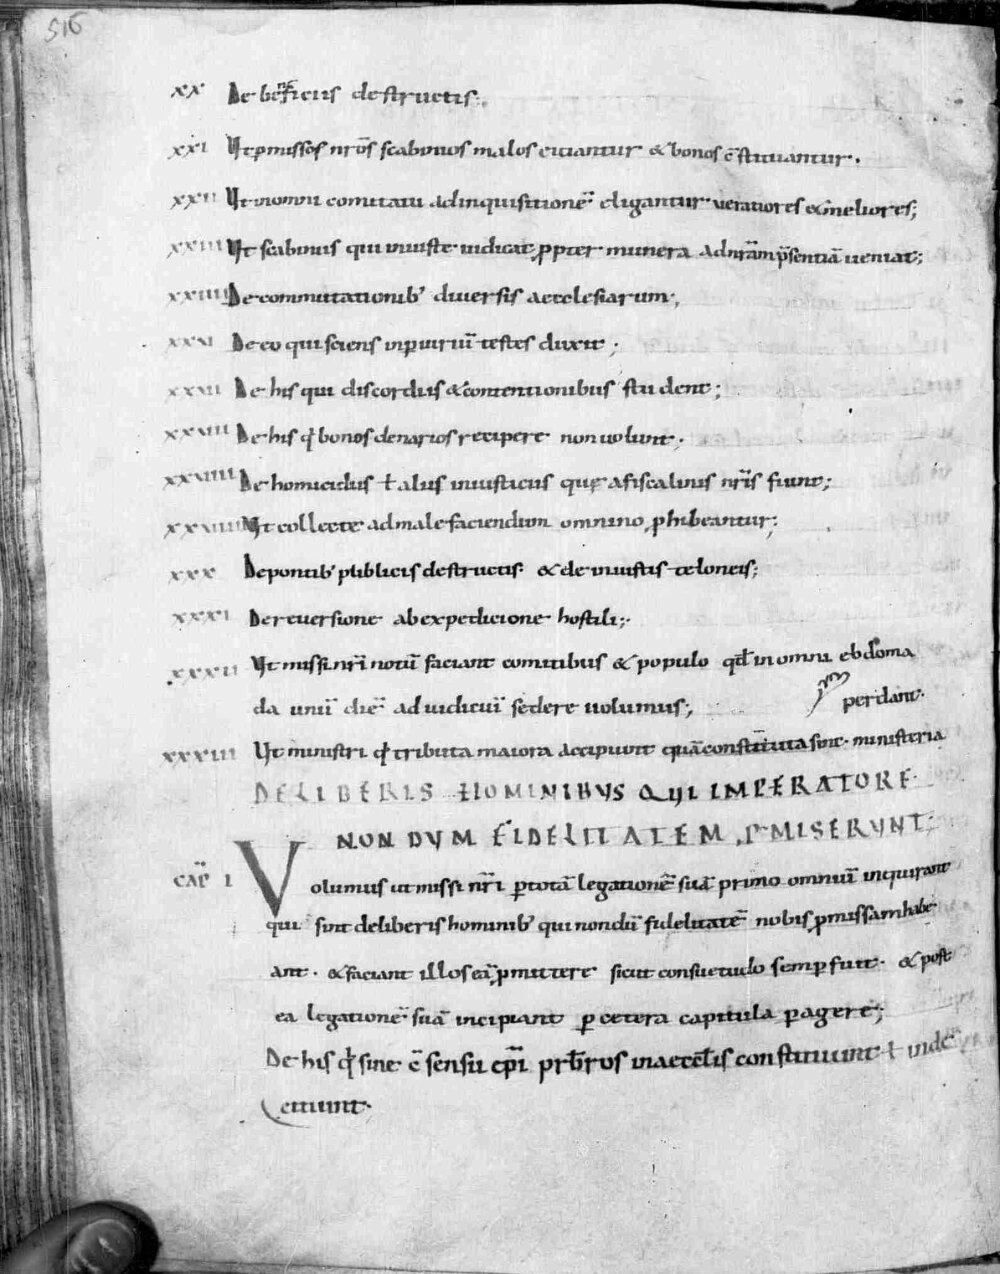 516
xx De beneficiis destructis;
xxi Ut p missos nr̄os scabinios malos eiciantur & bonos c̄stituantur.
xxii Ut in omni comitatu ad inquisitionē eligantur veratiores & meliores;
xxiii Ut scabinus qui iniuste iudicat ꝓpter munera ad nr̄am p̄sentiā veniat;
xxiiii De commutationib; diversis aecclesiarum;
xxvi De eo qui sciens in piuriū testes duxit;
xxvii De his qui discordiis & contentionibus student;
xxviii De his q̇ bonos denarios recipere nonvolunt.
xxviiii De homicidiis ł aliis iniusticiis que a fiscalinis nr̄is fiunt;
xxviiii Ut collecte admale faciendum omnino ꝓhibeantur;
xxx De pontib; publicis destructis & de iniustis teloneis;
xxxi De reversione ab expedicione hostili;
xxxii Ut missi nr̄i notū faciant comitibus & populo qđ in omni ebdoma
da unū diē ad iudiciū sedere volumus;
perdant.
xxxiii Ut ministri q̇ tributa maiora accipiunt quā constituta sint ministeria
DE LIBERIS HOMINIBUS QUI IMPERATORE
NON DUM FIDELITATEM ꝓMISERUNT;
CAP̄ I Volumus ut missi nr̄i p totā legationē suā primo omniū inquirant
qui sint de liberis hominib; qui nondū fidelitatē nobis ꝓmissam habe
ant. & faciant illos eā ꝓmittere sicut consuetudo semp fuit. & post
ea legationē suā incipiant p cetera capitula pagere;
De his q̇ sine c̄sensu ep̄i prb̄ros in aecc̄lis constituunt ł inde
eiciunt.